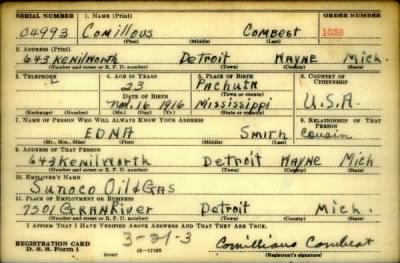 SERIAL NUMBER 1. NAME (Print) ORDER NUMBER
04993 Comillous Combest 1038
(First) (Middle) (Last)
2. ADDRESS (Print)
643 Kenilworth Detroit Wayne Mich.
(Number and street or R. F. D. number) (Town) (County) (State)
3. TELEPHONE 4. AGE IN YEARS 5. PLACE OF BIRTH 6. COUNTRY OF CITIZENSHIP
23 Pachuta
DATE OF BIRTH (Town or county)
Nov. 16 1916 Mississippi U.S.A.
(Exchange) (Number) (Mo.) (Day) (Yr.) (State or country)
7. NAME OF PERSON WHO WILL ALWAYS KNOW YOUR ADDRESS 8. RELATIONSHIP OF THAT PERSON
EDNA Smith Cousin
(Mr., Mrs., Miss) (First) (Middle) (Last)
9. ADDRESS OF THAT PERSON
643 Kenilworth Detroit Wayne Mich
(Number and street or R. F. D. number) (Town) (County) (State)
10. EMPLOYER'S NAME
Sunoco Oil & Gas
11. PLACE OF EMPLOYMENT OR BUSINESS
7501 GranRiver Detroit Mich.
(Number and street or R. F. D. number) (Town) (County) (State)
I AFFIRM THAT I HAVE VERIFIED ABOVE ANSWERS AND THAT THEY ARE TRUE.
REGISTRATION CARD 3-21-3 Comillious Combest
D. S. S. Form 1 (over) 16-17105 (Registrant's signature)